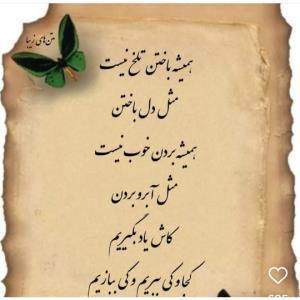 متن های زیبا
همیشه باختن تلخ نیست
مثل دل باختن
همیشه بردن خوب نیست
مثل آبرو بردن
کاش یاد بگیریم
کجا و کی ببریم و کی ببازیم